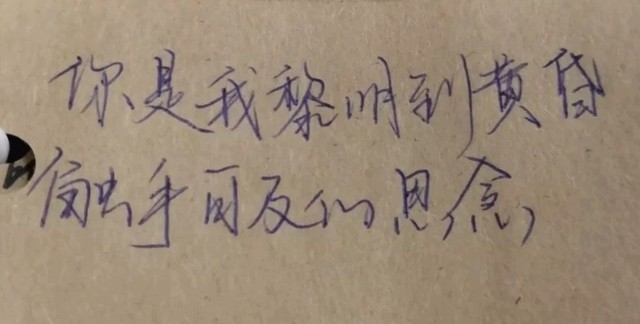 你是我黎明到黄昏
触手可及的思念